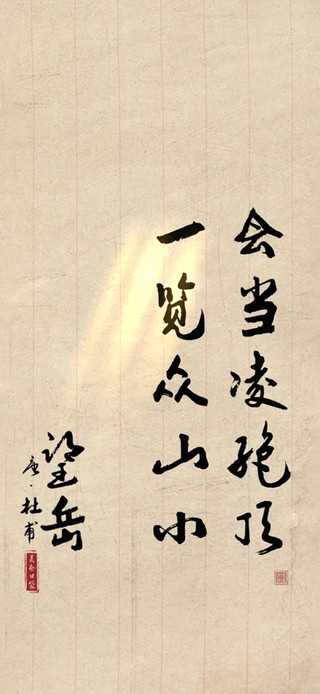 会当凌绝顶
一览众山小
望岳
唐·杜甫